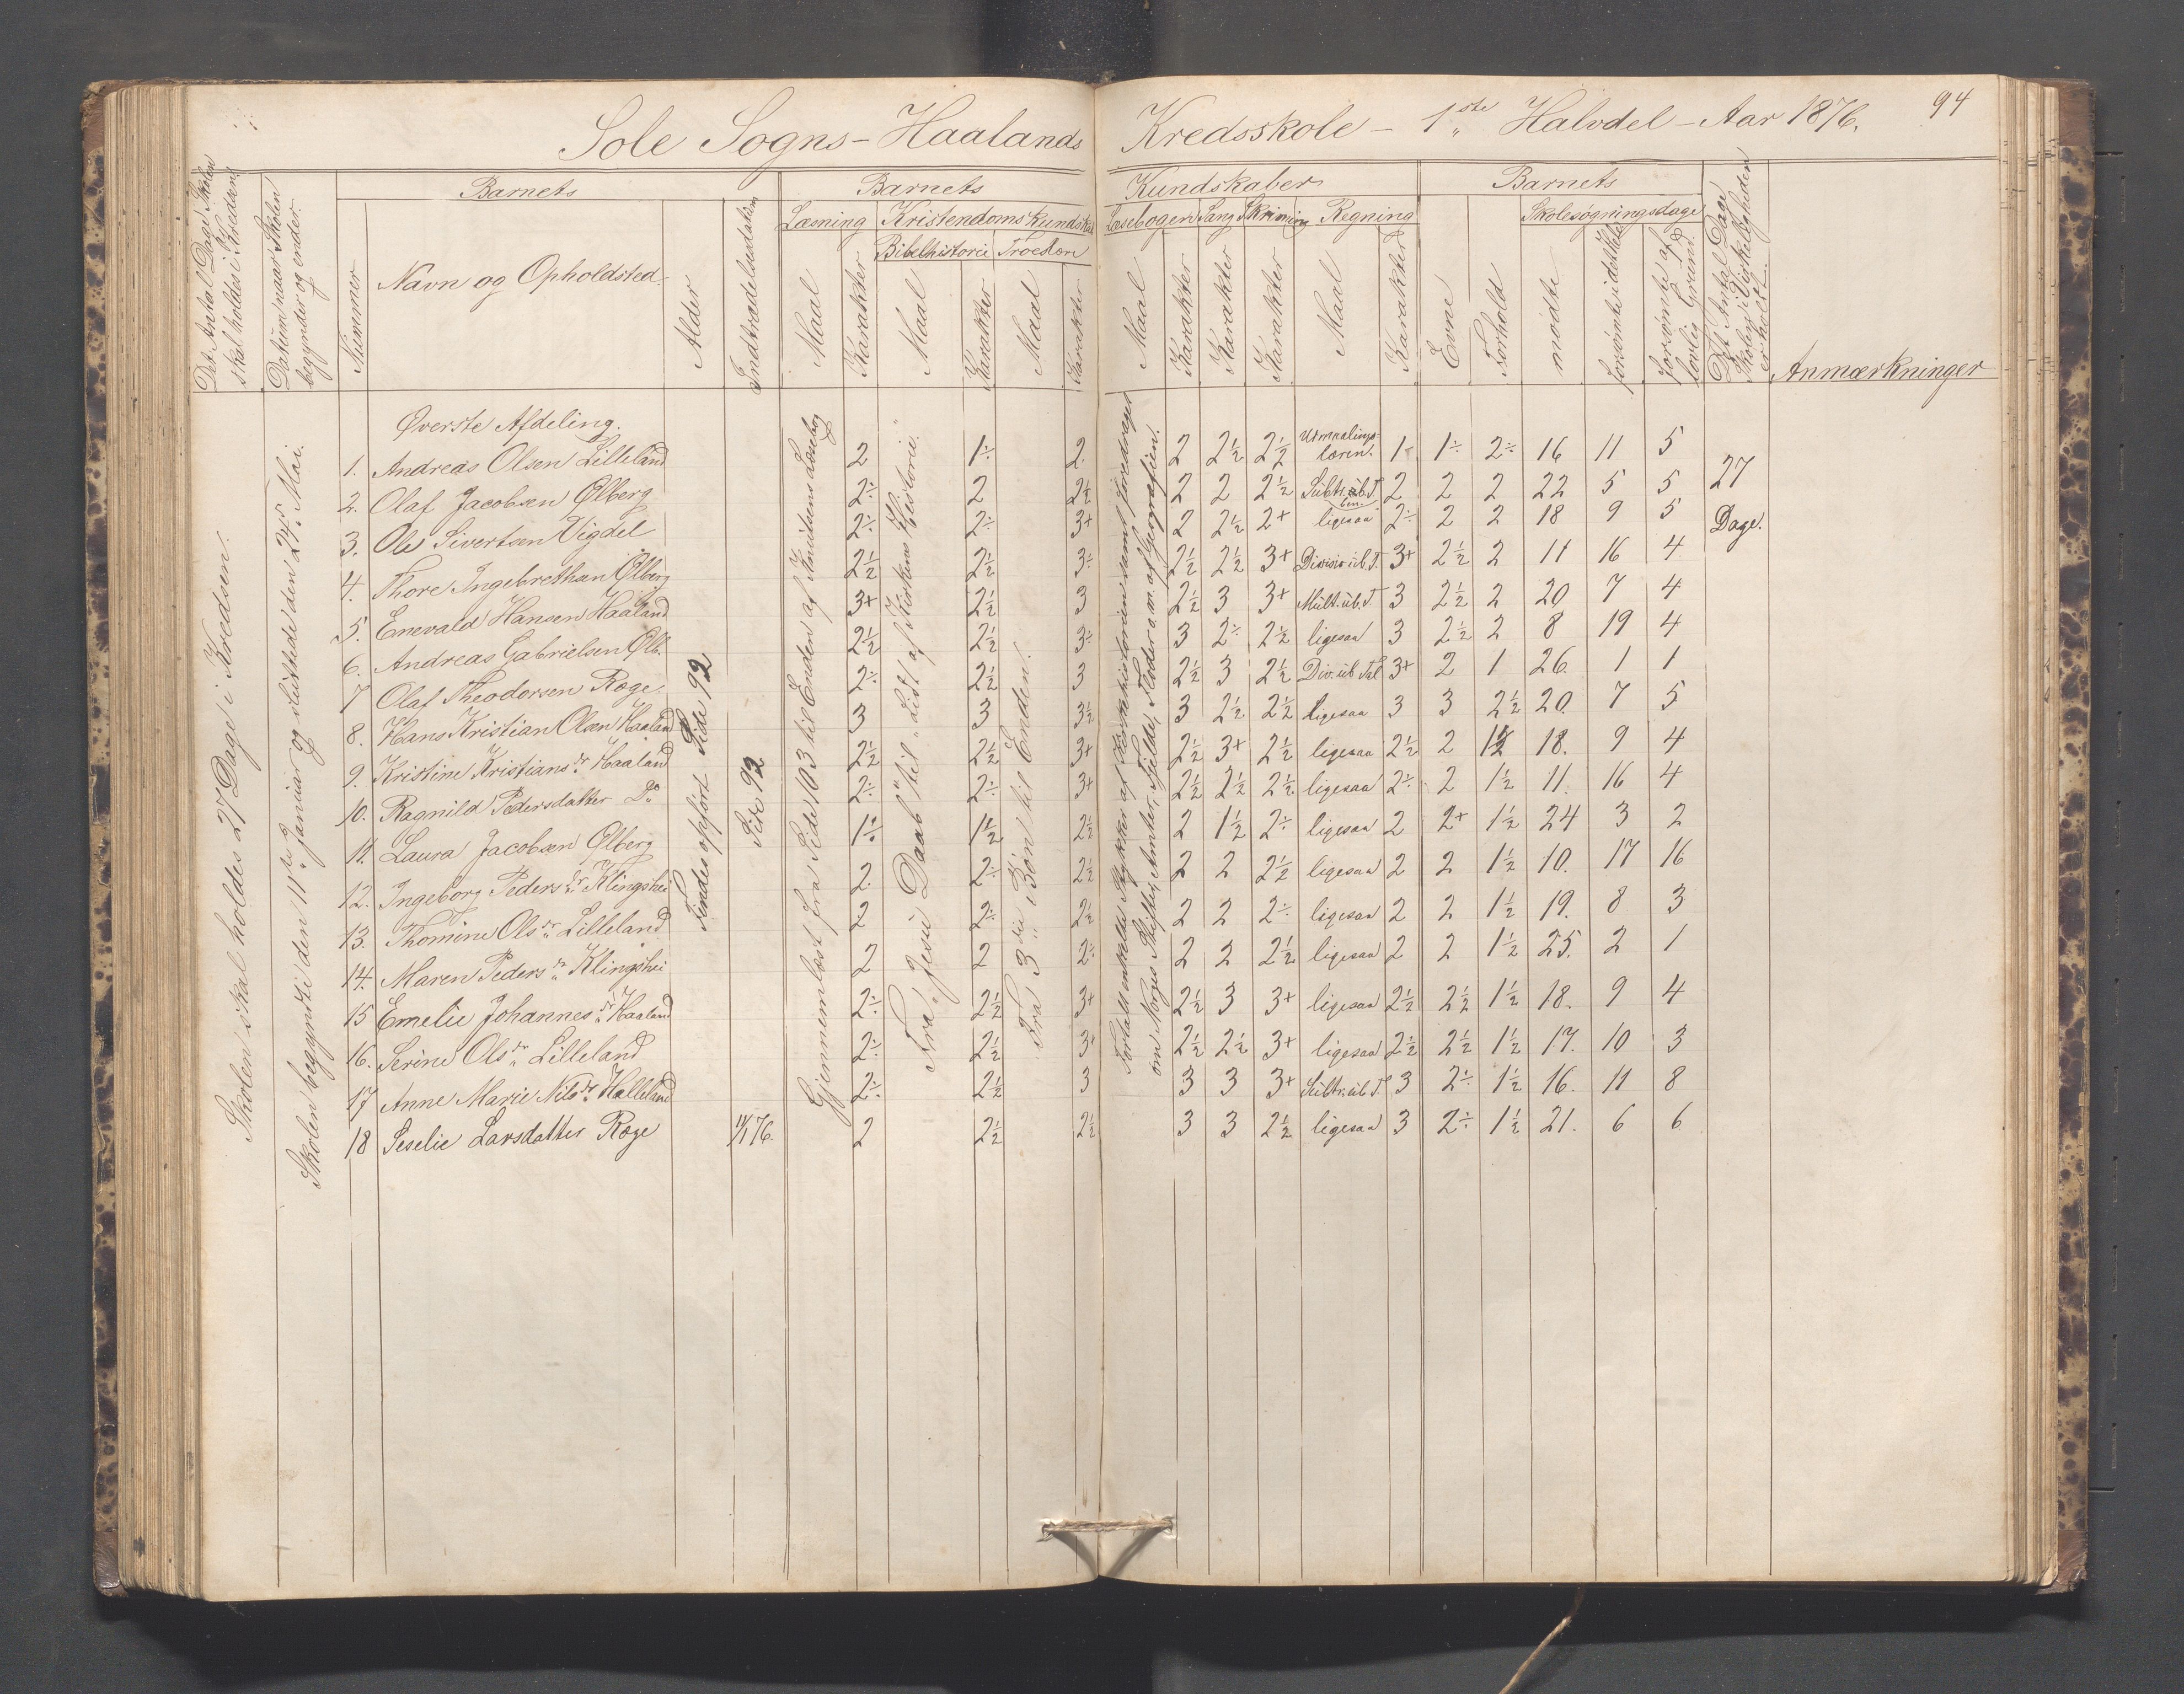 94
Sole Sogns - Haalands Kredsskole - 1ste Halvdel - Aar 1876.
Det Antal Dage Skolen skal holdes i Kredsen
Datum naar Skolen begynder og ender.
Barnets
Nummer
Navn og Opholdsted.
Alder
Indtrædelsesdatum
Barnets Kundskaber
Læsning
Maal
Karakter
Kristendomskundskab
Bibelhistorie
Maal
Karakter
Troeslære
Maal
Karakter
Læsebogen
Maal
Karakter
Sang
Karakter
Skrivning
Karakter
Regning
Maal
Karakter
Barnets
Evne
Forhold
Skolesøgningsdage
mødte
forsømte i det Hele
forsømte af lovlig Grund.
Det Antal Dage Skolen i Virkeligheden er holdt.
Anmærkninger
Skolen skal holdes 27 Dage i Kredsen.
Skolen begyndte den 11te Januar og sluttede den 24de Mai.
Findes opført Side 92
Side 92
Gjennemlæst fra Side 103 til Enden af Knudsens Læsebog
Fra "Jesu Daab" til "Lidt af Kirkens Historie."
Fra 3die Bøn til Enden.
om Norges Stifter, Amter, Fjelde, Floder o.m. af Geografien.
Øverste Afdeling.
1. Andreas Olsen Lilleland 2 1÷ 2 2 2½ 2½ Utmaalings-læren. 1÷ 1÷ 2÷ 16 11 5 27
2. Olaf Jacobsen Ølberg 2÷ 2 2½ 2 2 2½ Subtr. üb. T. 2 2 2 22 5 5 Dage.
3. Ole Sivertsen Vigdel 2÷ 2÷ 3+ 2 2½ 2+ ligesaa 2÷ 2 2 18 9 5
4. Thore Ingebrethsen Ølberg 2½ 2½ 3÷ 2½ 2½ 3+ Division üb. T. 3+ 2½ 2 11 16 4
5. Enevald Hansen Haaland 3+ 2½ 3 2½ 3 3+ Mult. üb. T. 3 2½ 2 20 7 4
6. Andreas Gabrielsen Ølb. 2½ 2½ 3÷ 3 2÷ 2½ ligesaa 3 2½ 2 8 19 4
7 Olaf Theodorsen Røge 2÷ 2½ 3 2½ 3 2½ Div. üb Tal 3+ 2 1 26. 1 1
8. Hans Kristian Olsen Haaland 3 3 3½ 3 2½ 2½ ligesaa 3 3 2½ 20. 7 5
9. Kristine Kristiansdr Haaland 2½ 2½ 3+ 2½ 3+ 2½ ligesaa 2½ 2 1½ 18. 9 4
10. Ragnild Pedersdatter Do 2÷ 2÷ 3+ 2½ 2½ 2½ ligesaa 2÷ 2 1½ 11. 16 4
11. Laura Jacobsen Ølberg 1÷ 1½ 2½ 2 1½ 2÷ ligesaa 2 2+ 1½ 24 3 2
12. Ingeborg Pedersdr Klingshei 2. 2÷ 2½ 2 2 2½ ligesaa 2 2 1½ 10. 17 16
13. Thomine Olsdr Lilleland 2 2÷ 2½ 2 2 2÷ ligesaa 2 2 1½ 19. 8 3
14. Maren Pedersdr Klingshei 2 2 2÷ 2 2 2½ ligesaa 2 2 1½ 25. 2 1
15 Emelie Johannesdr Haaland 2÷ 2½ 3+ 2½ 3 3+ ligesaa 2½ 2½ 1½ 18. 9 4
16. Serine Olsdr Lilleland 2÷ 2½ 3+ 2½ 2½ 3+ ligesaa 2½ 2½ 1½ 17. 10 3
17 Anne Marie Nilsdr Halleland 2÷ 2½ 3 3 3 3+ Subtr. üb. T. 3 2÷ 1½ 16. 11 8
18 Seselie Larsdatter Røge 11/1 76. 2 2½ 2½ 3 3 2½ ligesaa 3 2÷ 1½ 21. 6 6